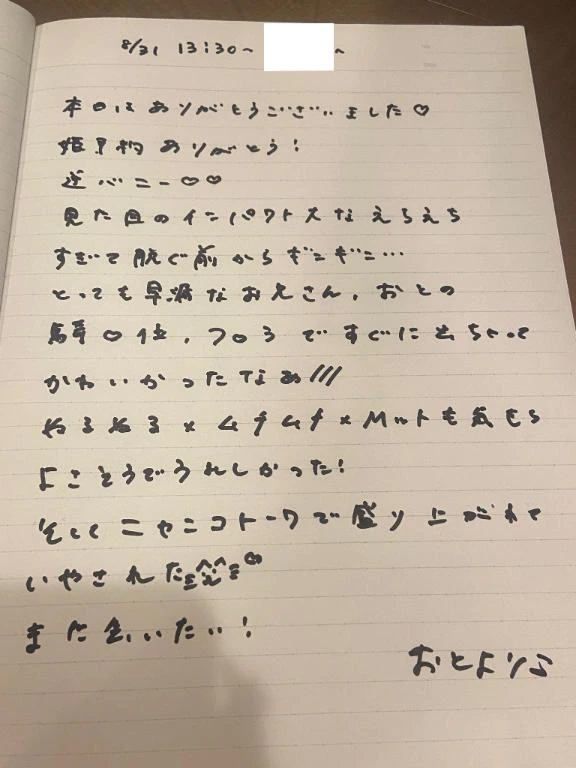 8/31 13:30〜 〜
本日はありがとうございました♡
姫予約ありがとう!
逆バニー♡♡
見た目のインパクト大なえちえち
すぎて脱ぐ前からギンギン…
とっても早漏なお兄さん、おとの
騎乗♡位、フロラですぐに出ちゃって
かわいかったなぁ///
ぬるぬる×ムチムチ×Mットも気もち
よさそうでうれしかった!
そしてニャンコトークで盛り上がれて
いやされた
また会いたい!
おとより♪